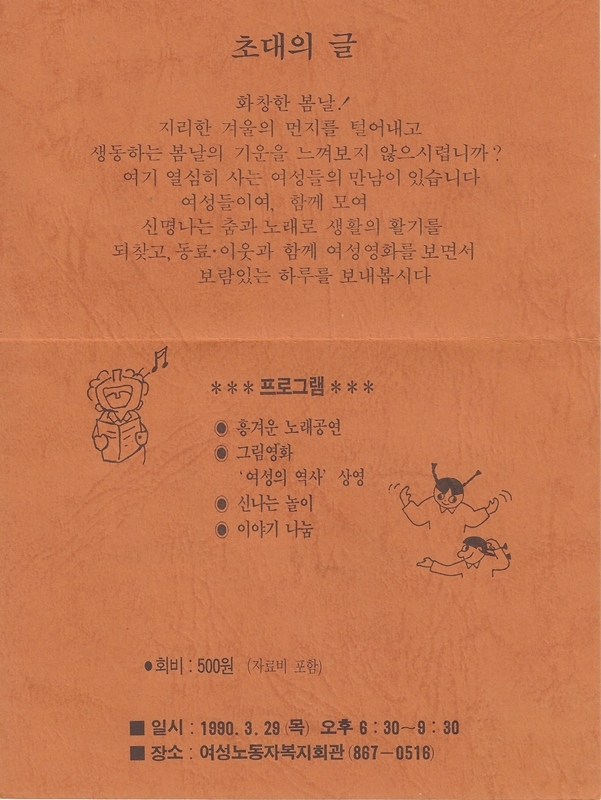 초대의 글
화창한 봄날!
지리한 겨울의 먼지를 털어내고
생동하는 봄날의 기운을 느껴보지 않으시렵니까?
여기 열심히 사는 여성들의 만남이 있습니다
여성들이여, 함께 모여
신명나는 춤과 노래로 생활의 활기를
되찾고, 동료·이웃과 함께 여성영화를 보면서
보람있는 하루를 보내봅시다
*** 프로그램 ***
◉ 흥겨운 노래공연
◉ 그림영화
'여성의 역사' 상영
◉ 신나는 놀이
◉ 이야기 나눔
●회비 : 500원 (자료비 포함)
■ 일시 : 1990. 3. 29 (목) 오후 6 : 30~9 : 30
■ 장소 : 여성노동자복지회관 (867-0516)